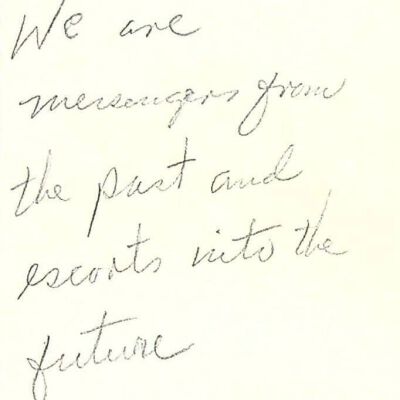 We are
messengers from
the past and
escorts into the
future